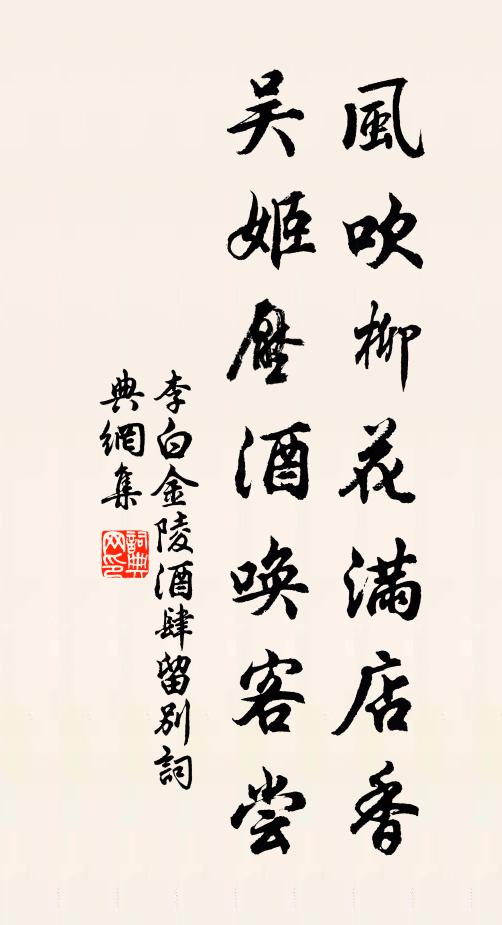 風吹柳花滿店香
吳姬壓酒喚客嘗
李白金陵酒肆留別詞
典網集
詞典网印